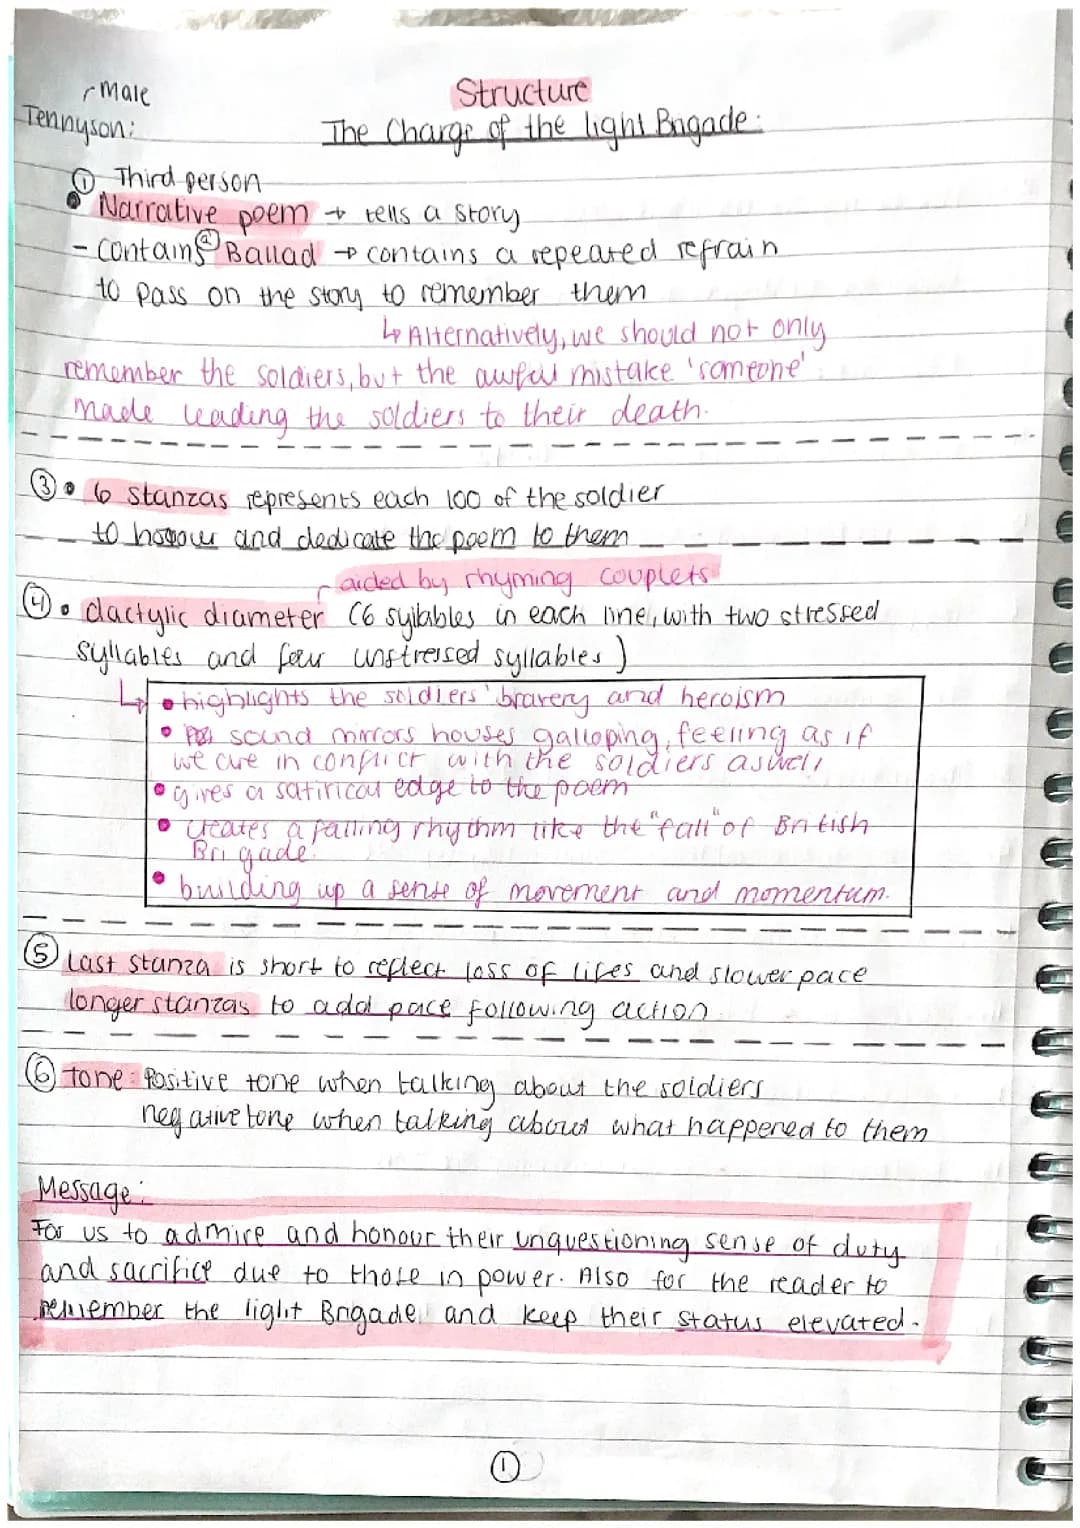 Male
Tennyson:
Structure
The Charge of the light Brigade:
① Third person
• Narrative poem → tells a story
- contains ② Ballad → contains a repeated refrain
to pass on the story to remember them
↳ Alternatively, we should not only
remember the soldiers, but the awful mistake 'someone'
made leading the soldiers to their death.
③ • 6 stanzas represents each 100 of the soldier
to honour and dedicate the poem to them
aided by rhyming couplets
④ • dactylic diameter (6 syllables in each line, with two stressed
syllables and four unstressed syllables)
↳ • highlights the soldiers' bravery and heroism
• sound mirrors houses galloping, feeling as if
we are in conflict with the soldiers aswell
• gives a satirical edge to the poem
• creates a falling rhythm like the "fall" of British
Brigade.
• building up a sense of movement and momentum.
⑤ Last stanza is short to reflect loss of lifes and slower pace
longer stanzas to add pace following action
⑥ tone: Positive tone when talking about the soldiers
negative tone when talking about what happened to them
Message:
For us to admire and honour their unquestioning sense of duty
and sacrifice due to those in power. Also for the reader to
remember the light Brigade and keep their status elevated.
①